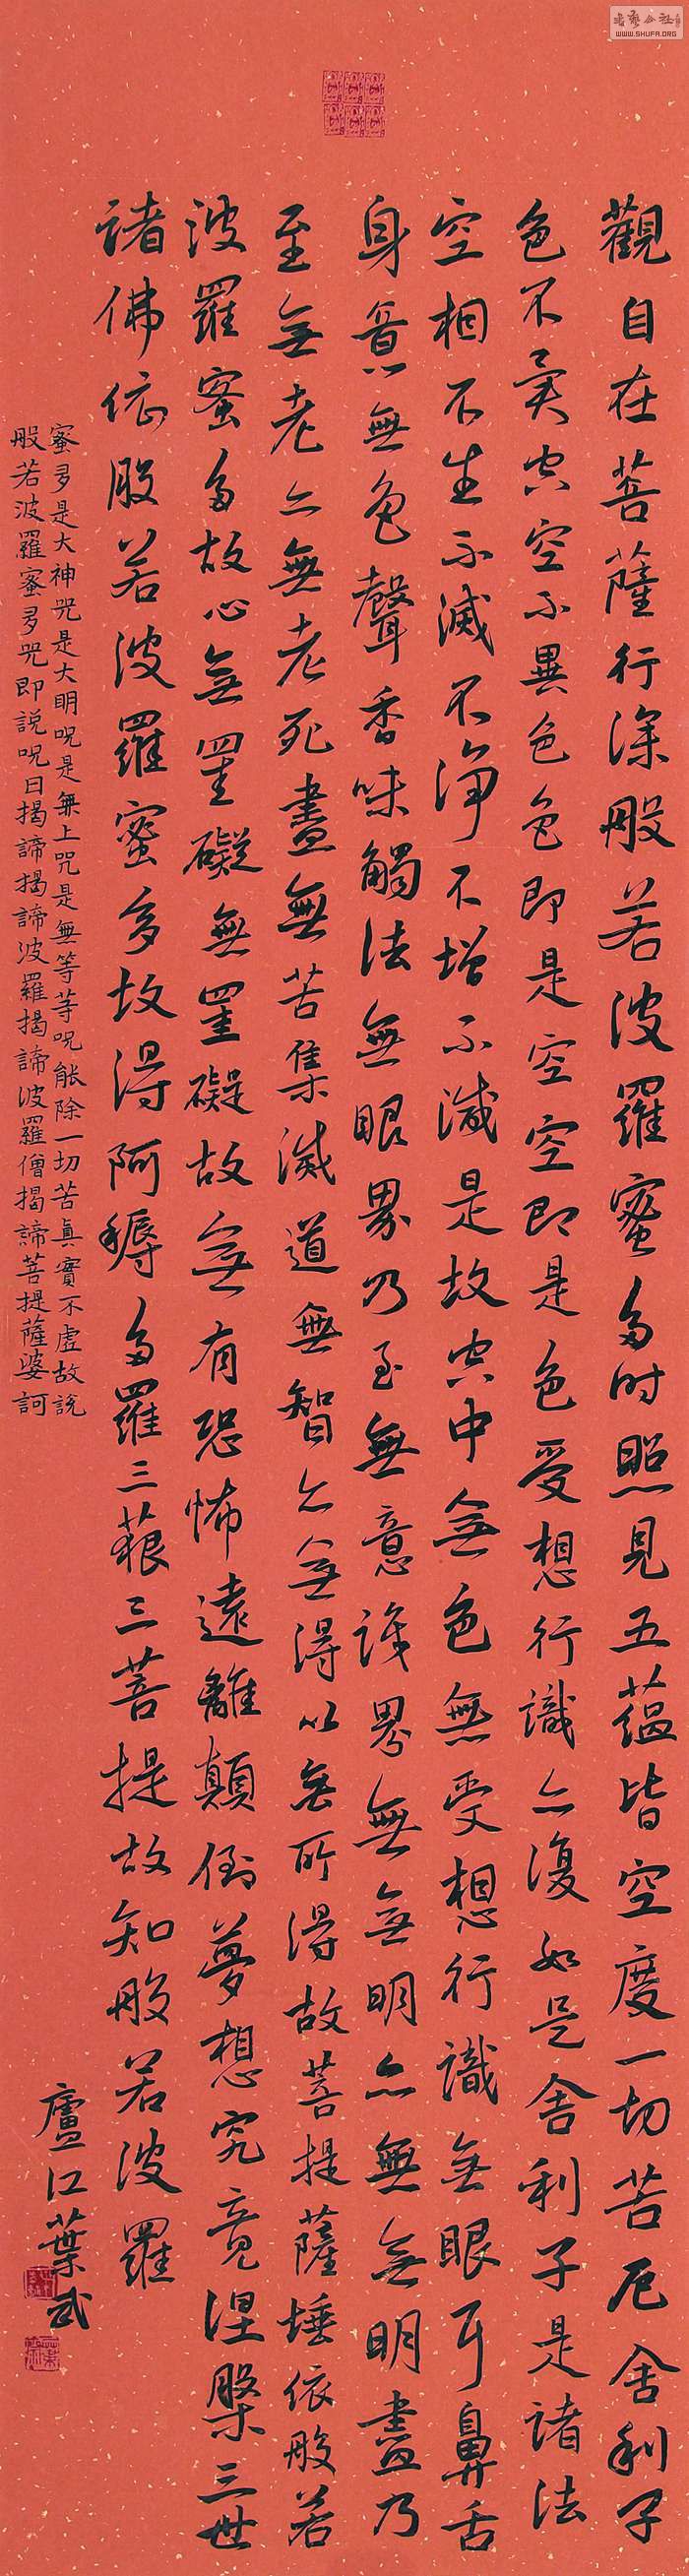 觀自在菩薩行深般若波羅蜜多時照見五蘊皆空度一切苦厄舍利子
色不異空空不異色色即是空空即是色受想行識亦復如是舍利子是諸法
空相不生不滅不淨不增不減是故空中無色無受想行識無眼耳鼻舌
身意無色聲香味觸法無眼界乃至無意識界無無明亦無無明盡乃
至無老亦無老死盡無苦集滅道無智亦無得以無所得故菩提薩埵依般若
波羅蜜多故心無罣礙無罣礙故無有恐怖遠離顛倒夢想究竟涅槃三世
諸佛依般若波羅蜜多故得阿耨多羅三藐三菩提故知般若波羅
蜜多是大神咒是大明呪是無上咒是無等等呪能除一切苦真實不虛故說
般若波羅蜜多咒即說呪曰揭諦揭諦波羅揭諦波羅僧揭諦菩提薩婆訶
廬江葉武
WWW.SHUFA.ORG